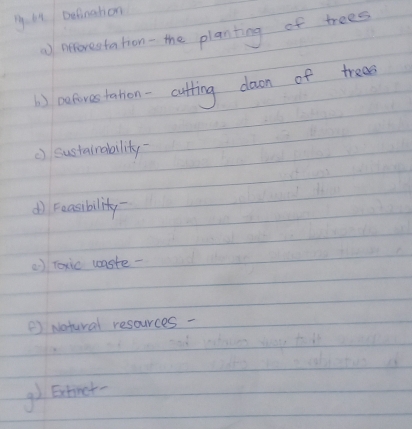 Pg. 69. Defination
a) Afforestation - the planting of trees
b) Deforestation - cutting daon of trees
c) Sustainability -
d) Feasibility -
e) Toxic waste -
f) Natural resources -
g) Extinct -